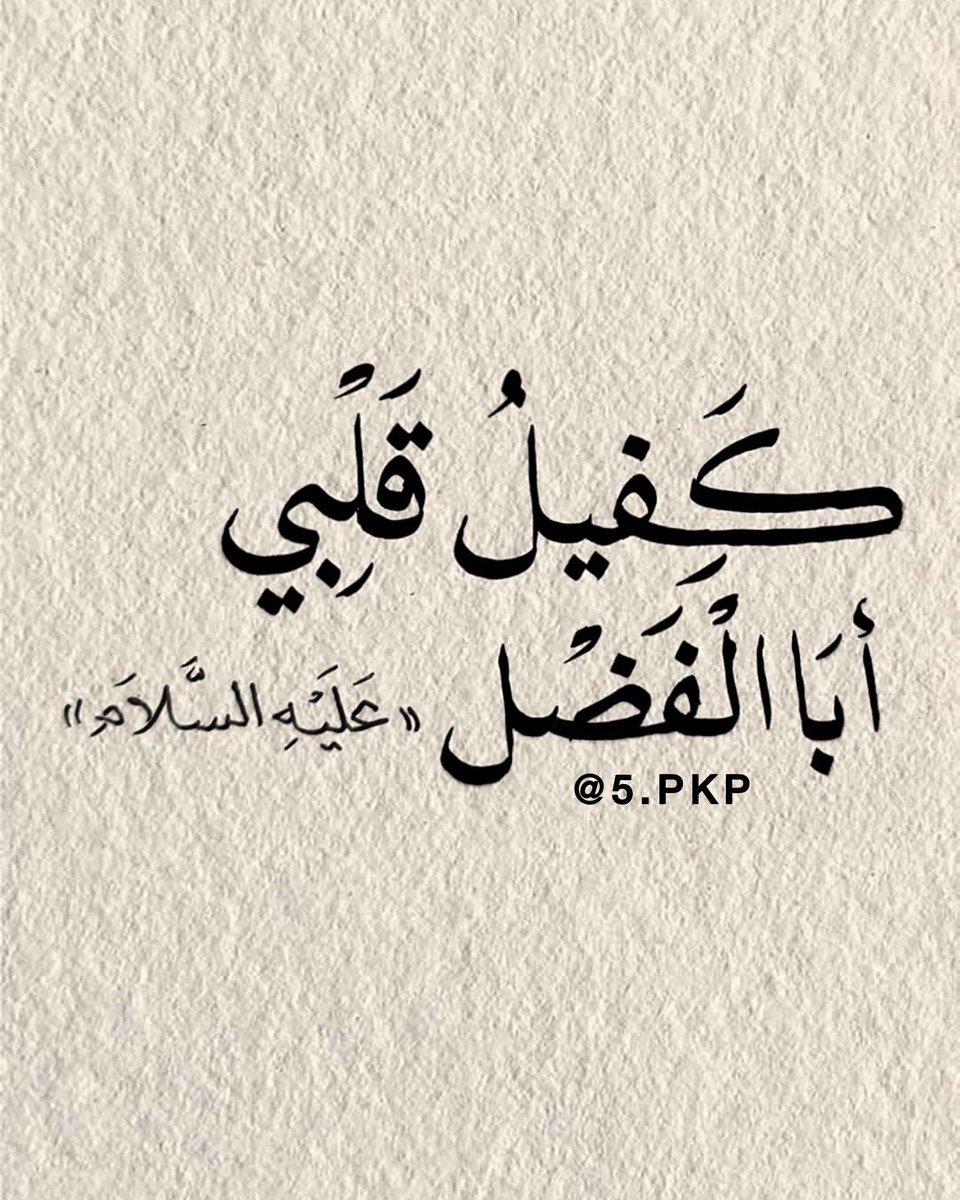 كَفِيلُ قَلْبِي
أَبَا الْفَضْل «عَلَيْهِ السَّلَامَ»
@5.PKP